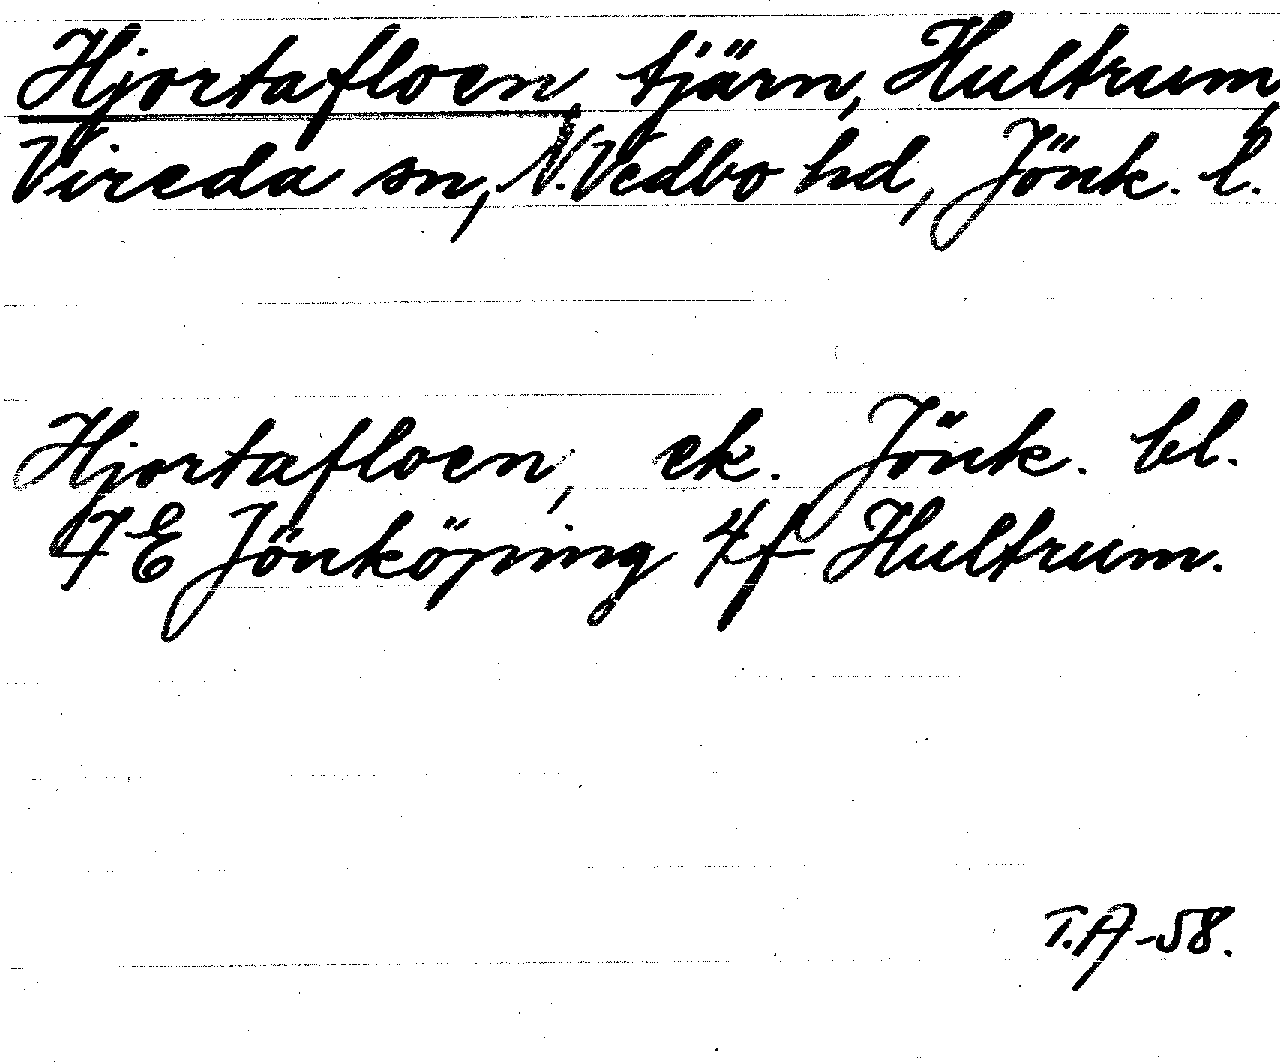 Hjortafloen, tjärn, Hultrum,
Vireda sn, N.Vedbo hd, Jönk. l.
Hjortafloen, ek. Jönk. bl.
7E Jönköping 4f Hultrum.
T.A-58.